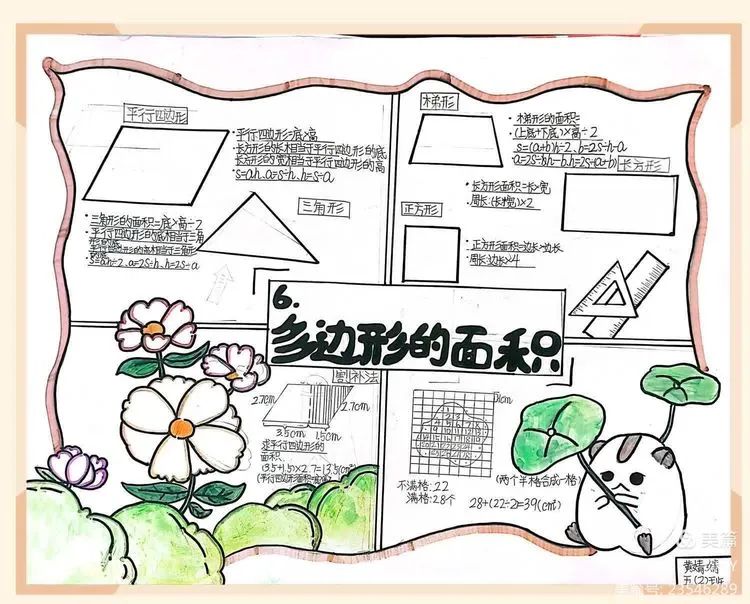 平行四边形
·平行四边形=底×高
·长方形的长相当于平行四边形的底
长方形的宽相当于平行四边形的高
·s=ah、a=s÷h、h=s÷a
·三角形的面积=底×高÷2
·平行四边形的底相当于三角
形的底
平行四边形的高相当于三角形
的高
·s=ah÷2、a=2s÷h、h=2s÷a
三角形
梯形
·梯形的面积=
(上底+下底)×高÷2
长方形
·长方形面积=长×宽
·周长:(长+宽)×2
正方形
·正方形面积=边长×边长
·周长:边长×4
6.
多边形的面积
割补法
2.7cm
2.7cm
3.5cm
1.5cm
求平行四边形的
面积.
(3.5+1.5)×2.7=13.5(cm²)
1cm
(两个半格合成一格)
不满格:22
满格:28个
28+(22÷2)=39(cm²)
美篇
黄婧熺
五(2)班
美篇号:23546289